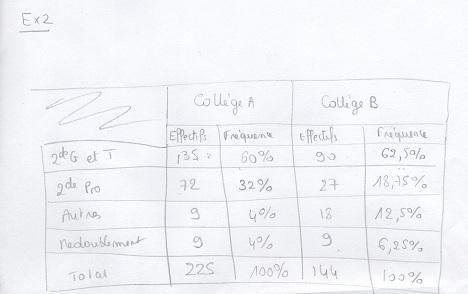 Ex2
Collège A Collège B
Effectifs Fréquence Effectifs Fréquence
2de G et T 135 60% 90 62,5%
2de Pro 72 32% 27 18,75%
Autres 9 4% 18 12,5%
Redoublement 9 4% 9 6,25%
Total 225 100% 144 100%